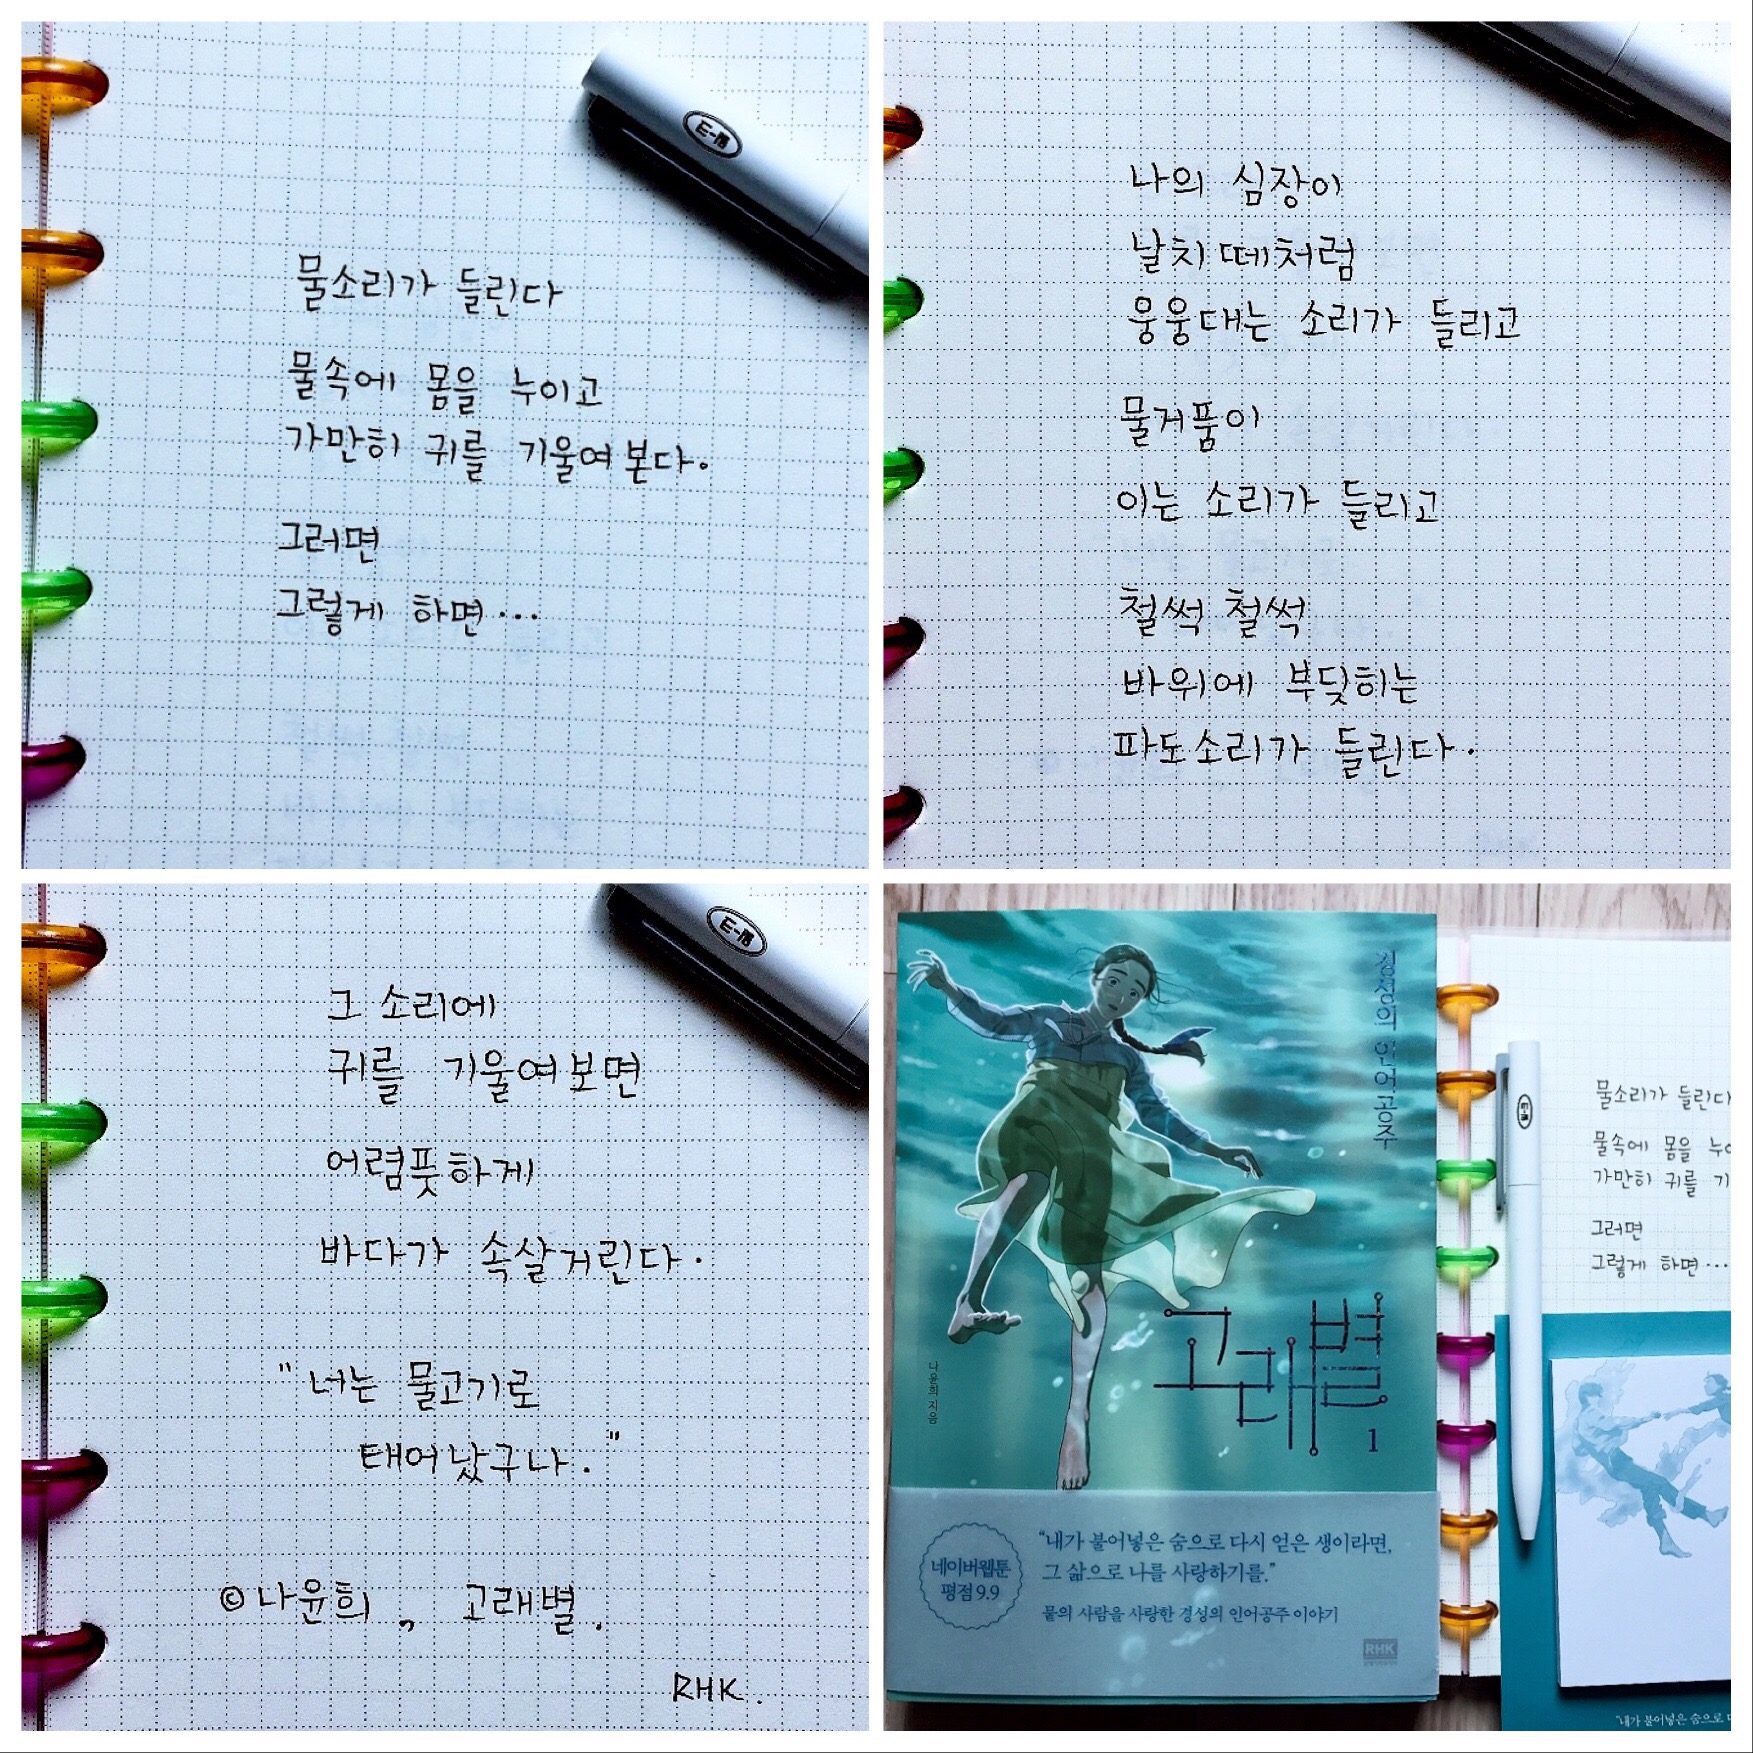 물소리가 들린다
물속에 몸을 누이고
가만히 귀를 기울여 본다.
그러면
그렇게 하면...
나의 심장이
날치 떼처럼
웅웅대는 소리가 들리고
물거품이
이는 소리가 들리고
철썩 철썩
바위에 부딪히는
파도소리가 들린다.
그 소리에
귀를 기울여보면
어렴풋하게
바다가 속살거린다.
"너는 물고기로
태어났구나."
©나윤희, 고래별.
RHK.
경성의 인어공주
고래별
1
나윤희 지음
네이버웹툰
평점 9.9
"내가 불어넣은 숨으로 다시 얻은 생이라면,
그 삶으로 나를 사랑하기를."
뭍의 사람을 사랑한 경성의 인어공주 이야기
RHK
물소리가 들린다
물속에 몸을 누
가만히 귀를 기
그러면
그렇게 하면...
"내가 불어넣은 숨으로